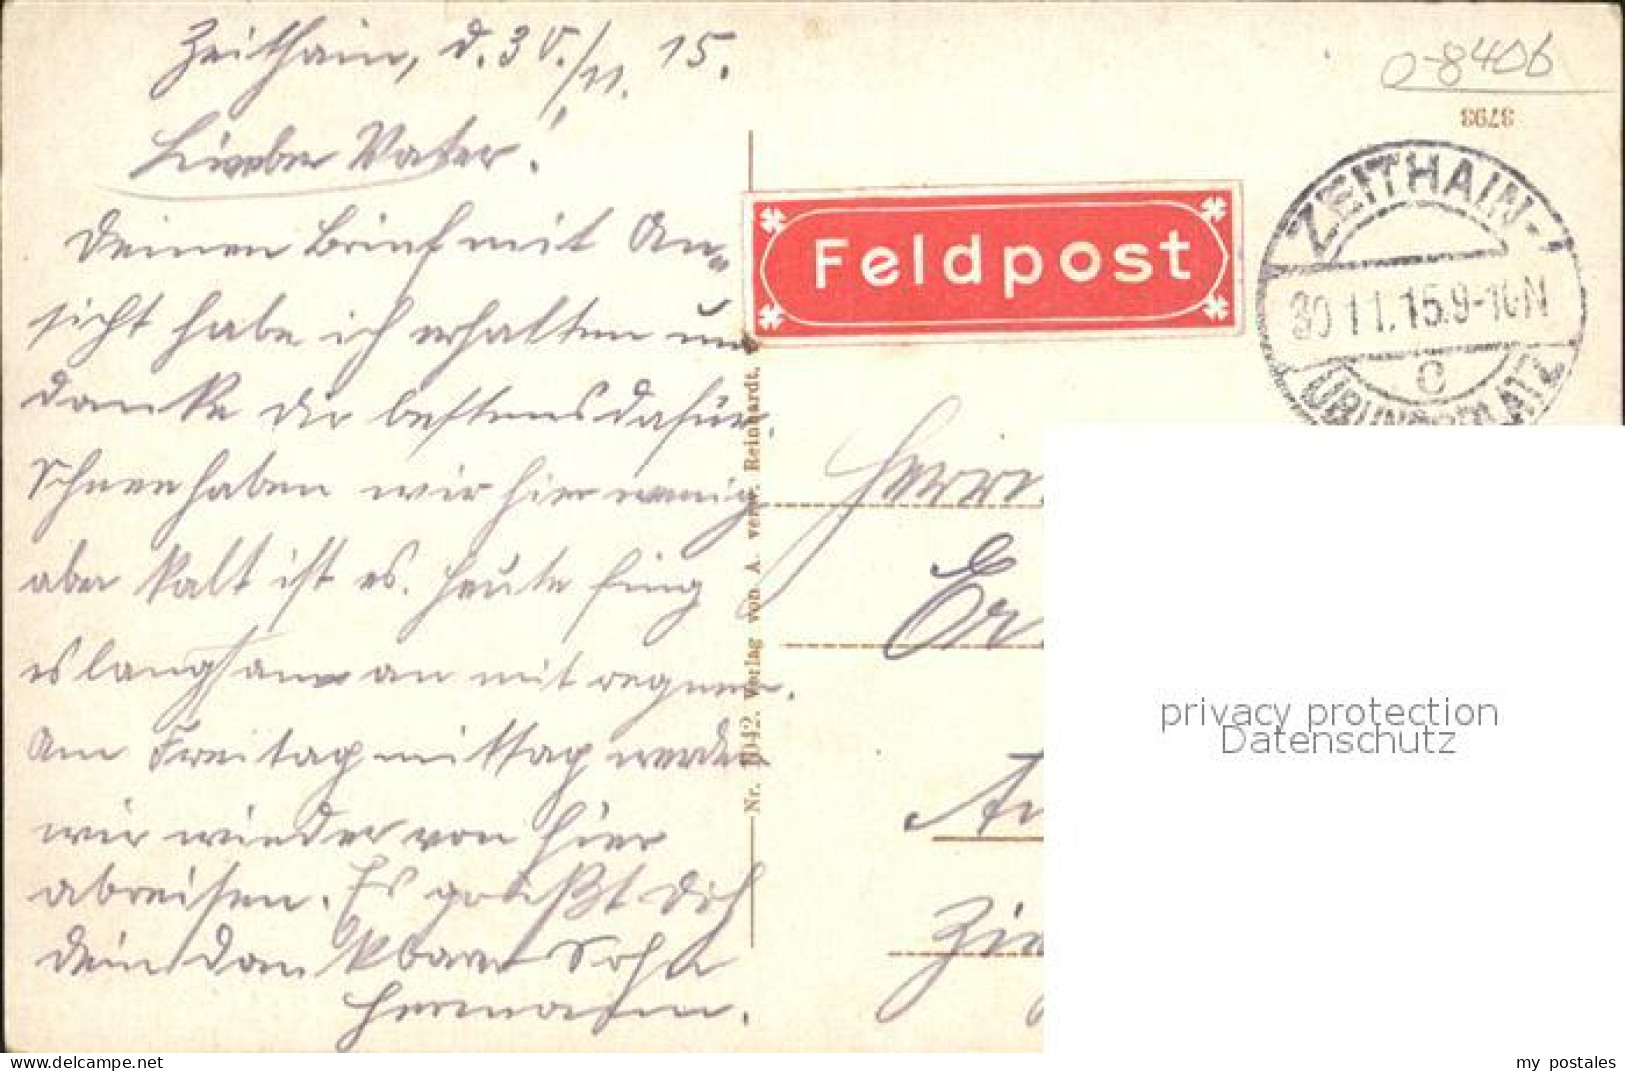 Zeithain, d. 30./11. 15.
Lieber Vater!
Deinen Brief mit An-
sicht habe ich erhalten und
danke dir bestens dafür.
Schnee haben wir hier wenig
aber kalt ist es. Heute fing
es langsam an mit regnen.
Am Freitag mittag werden
wir wieder von hier
abreisen. Es grüßt Dich
Dein dankbarer Sohn
Hermann.
Nr. 1042. Verlag von A. verw. Reinhardt,
Feldpost
0-8406
3793
ZEITHAIN-
30 11. 15. 9-10N
c
ÜBUNGSPLATZ
Herrn
Er
An
Zie
privacy protection
Datenschutz
www.delcampe.net
my_postales